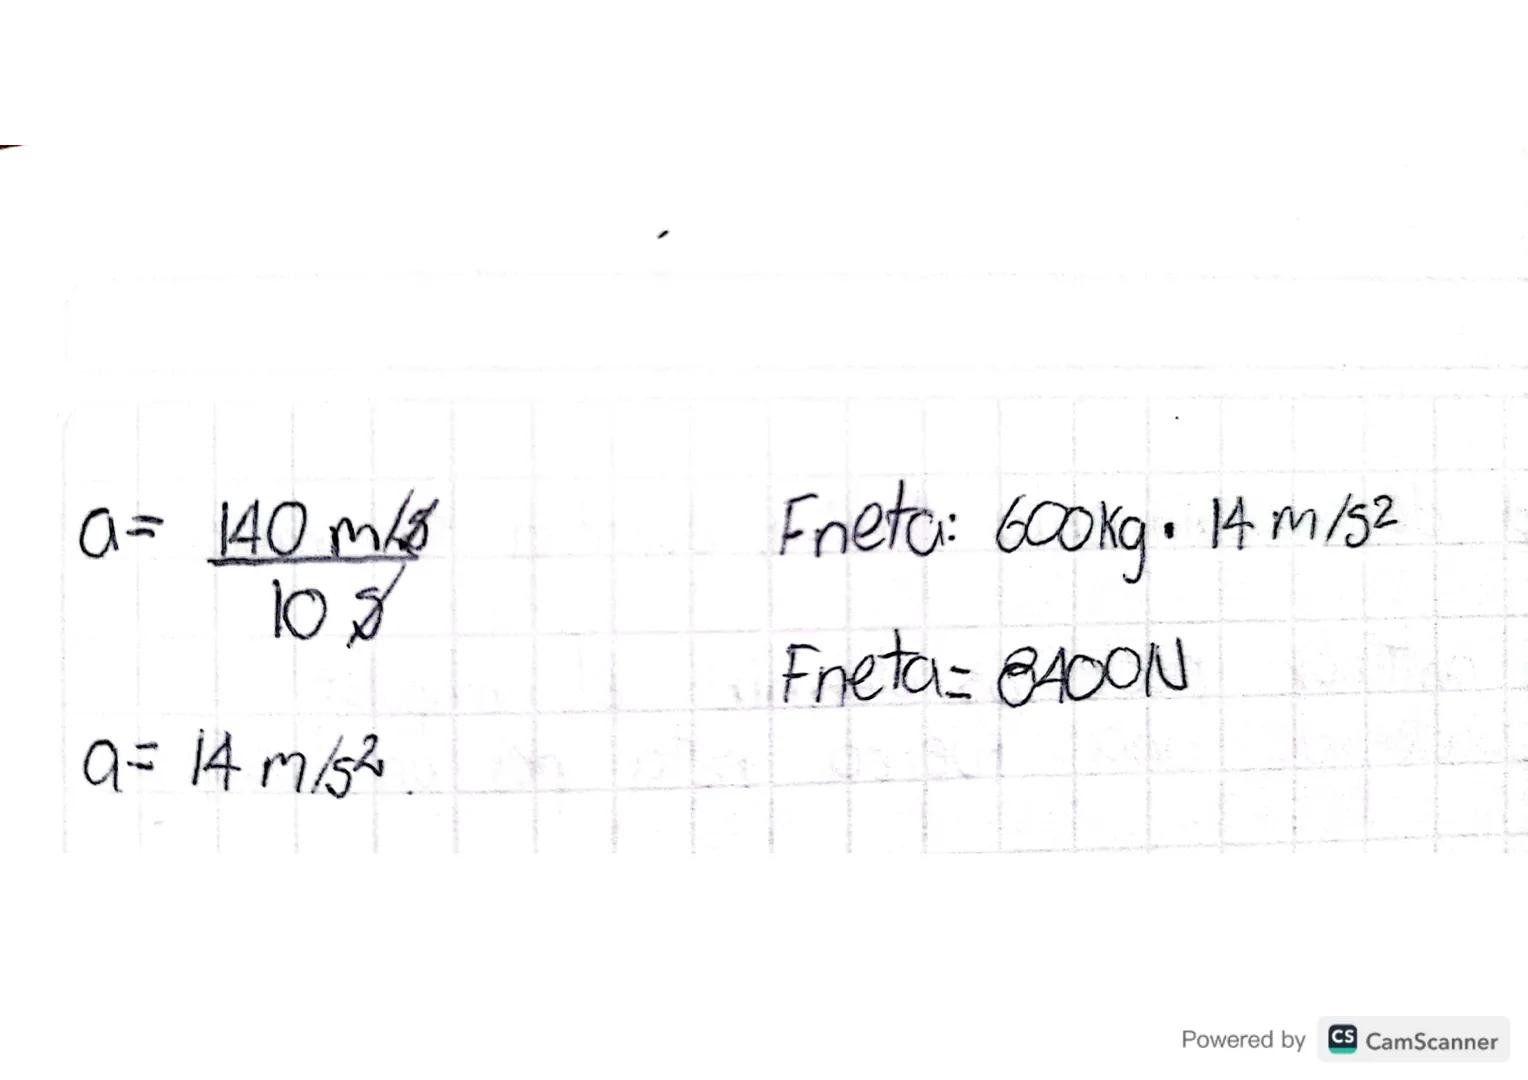 a= 140 m/s
10 s
a= 14 m/s²
Fneta: 600kg · 14 m/s²
Fneta= 8400N
Powered by CS CamScanner